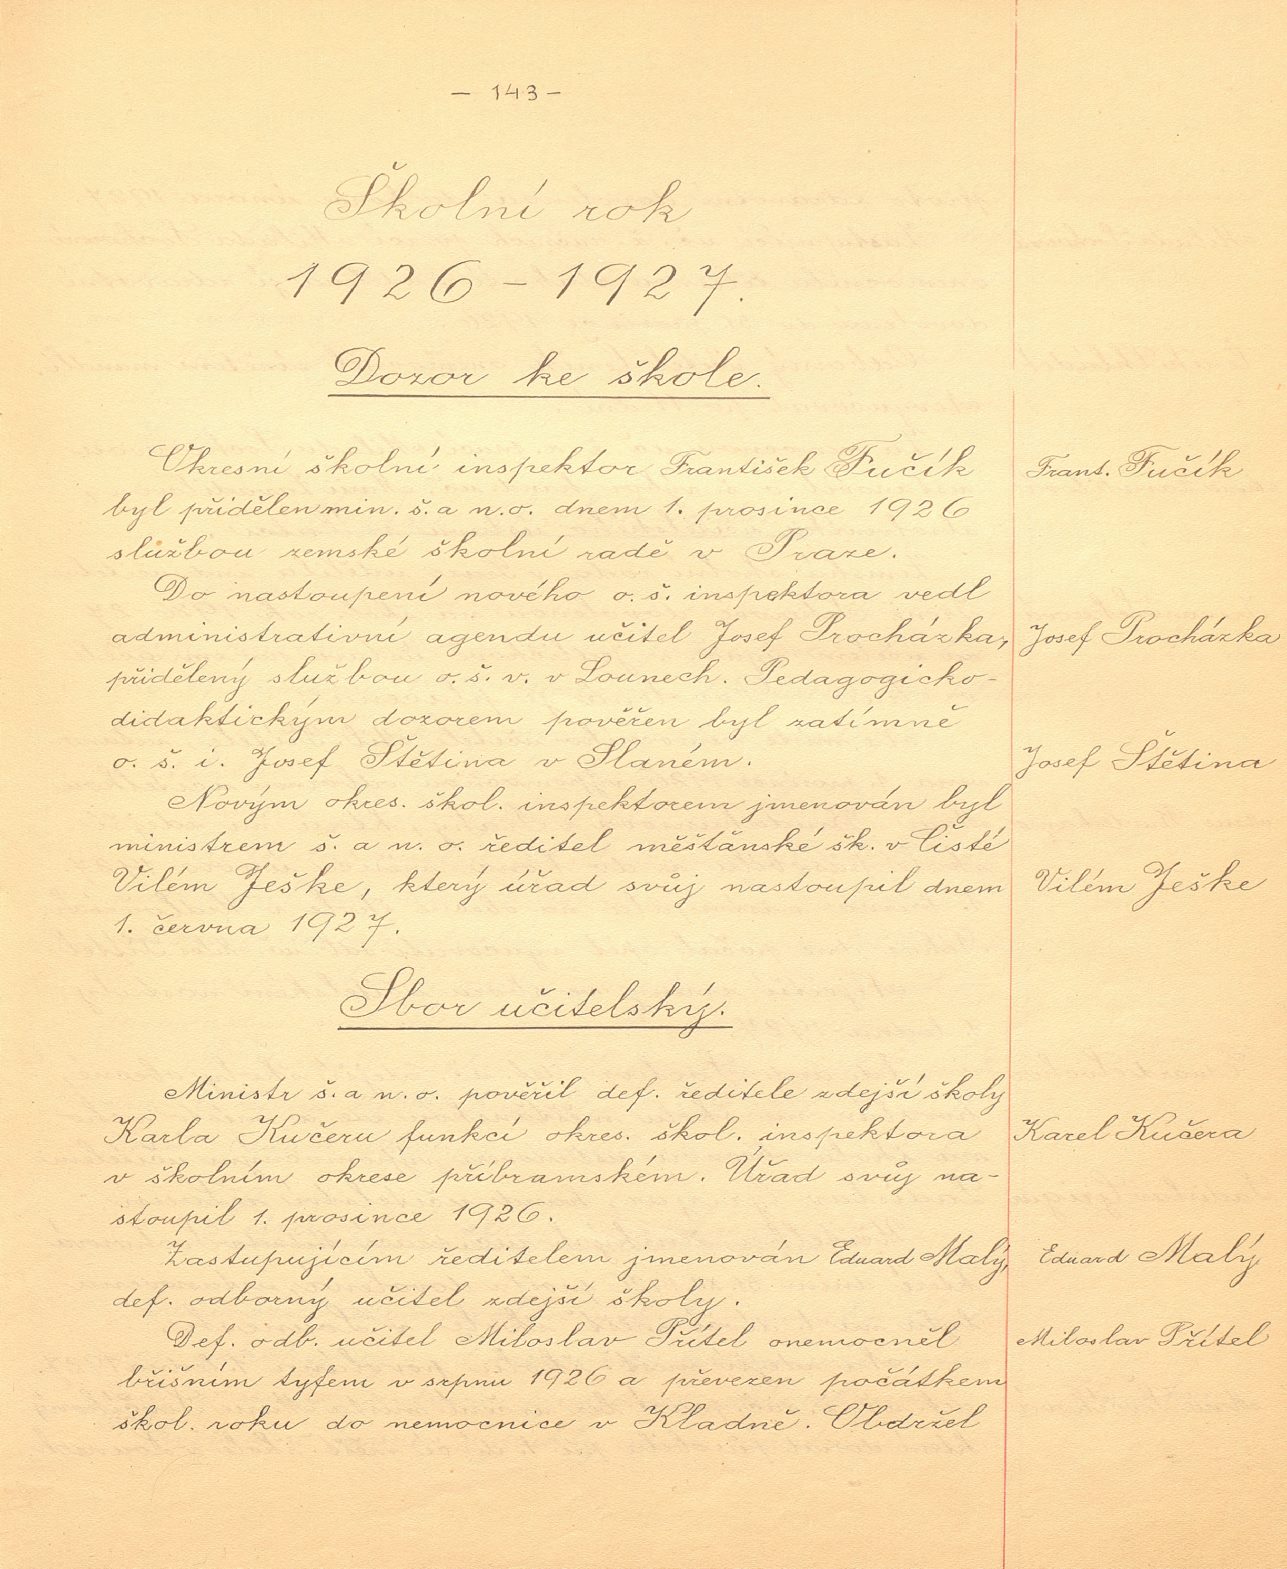 — 143 —
Školní rok
1926 – 1927.
Dozor ke škole.
Okresní školní inspektor František Fučík
Frant. Fučík
byl přidělen min. š. a n. o. dnem 1. prosince 1926
službou zemské školní radě v Praze.
Do nastoupení nového o. š. inspektora vedl
administrativní agendu učitel Josef Procházka,
Josef Procházka
přidělený službou o. š. v. v Lounech. Pedagogicko-
didaktickým dozorem pověřen byl zatímně
o. š. i. Josef Štětina v Slaném.
Josef Štětina
Novým okres. škol. inspektorem jmenován byl
ministrem š. a n. o. ředitel měšťanské šk. v Čisté
Vilém Ješke, který úřad svůj nastoupil dnem
Vilém Ješke
1. června 1927.
Sbor učitelský.
Ministr š. a n. o. pověřil def. ředitele zdejší školy
Karla Kučeru funkcí okres. škol. inspektora
Karel Kučera
v školním okrese příbramském. Úřad svůj na-
stoupil 1. prosince 1926.
Zastupujícím ředitelem jmenován Eduard Malý,
Eduard Malý
def. odborný učitel zdejší školy.
Def. odb. učitel Miloslav Přítel onemocněl
Miloslav Přítel
břišním tyfem v srpnu 1926 a převezen počátkem
škol. roku do nemocnice v Kladně. Obdržel